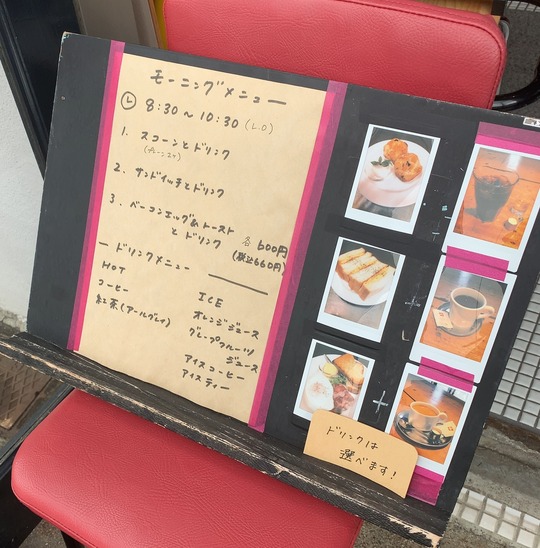 モーニングメニュー
8:30〜10:30 (L.O)
1. スコーンとドリンク
2. サンドイッチとドリンク
3. ベーコンエッグ&トースト
とドリンク 各600円
(税込660円)
ードリンクメニュー
HOT
コーヒー
紅茶(アールグレイ)
ICE
オレンジジュース
グレープフルーツ
ジュース
アイスコーヒー
アイスティー
ドリンクは
選べます!